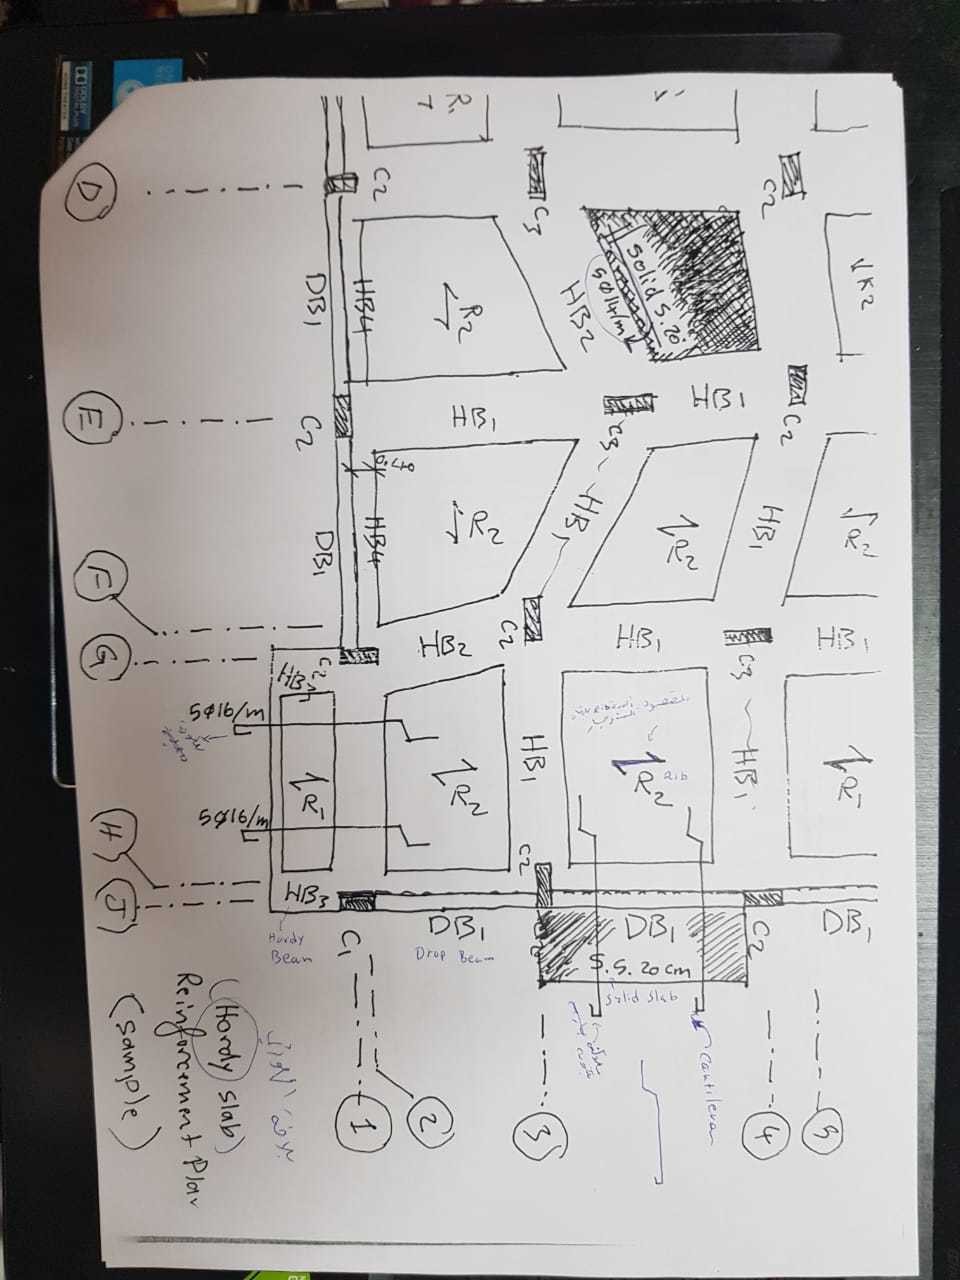 R1
D
C2
C3
C2
DB1
HB4
R2
HB2
Solid S. 20
5Ø14/m
R2
E
C2
HB1
C3
HB1
C2
0.70
DB1
HB4
R2
HB1
R2
HB1
R2
F
G
C2
HB2
C2
HB1
C3
HB1
HB3
5Ø16/m
R1
R2
HB1
المقصود
R2
Rib
HB1
R1
5Ø16/m
H
J
HB3
C1
C2
DB1
DB1
C2
DB1
Hordy
Beam
Drop Beam
S.S. 20 cm
Solid slab
cantilever
1
2
3
4
5
(Hordy slab)
Reinforcement Plan
(sample)